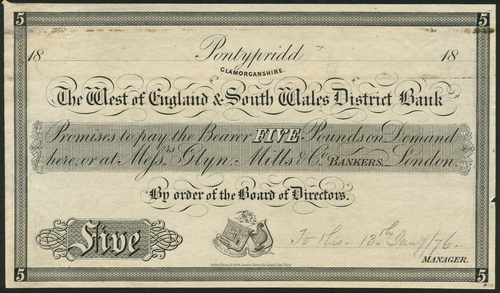 5 5
18 Pontypridd 18
GLAMORGANSHIRE.
The West of England & South Wales District Bank
Promises to pay the Bearer FIVE Pounds on Demand
here, or at Messrs. Glyn, Mills & Co. BANKERS, London.
By order of the Board of Directors.
Five
To this 13th Jany/76
MANAGER.
5 5